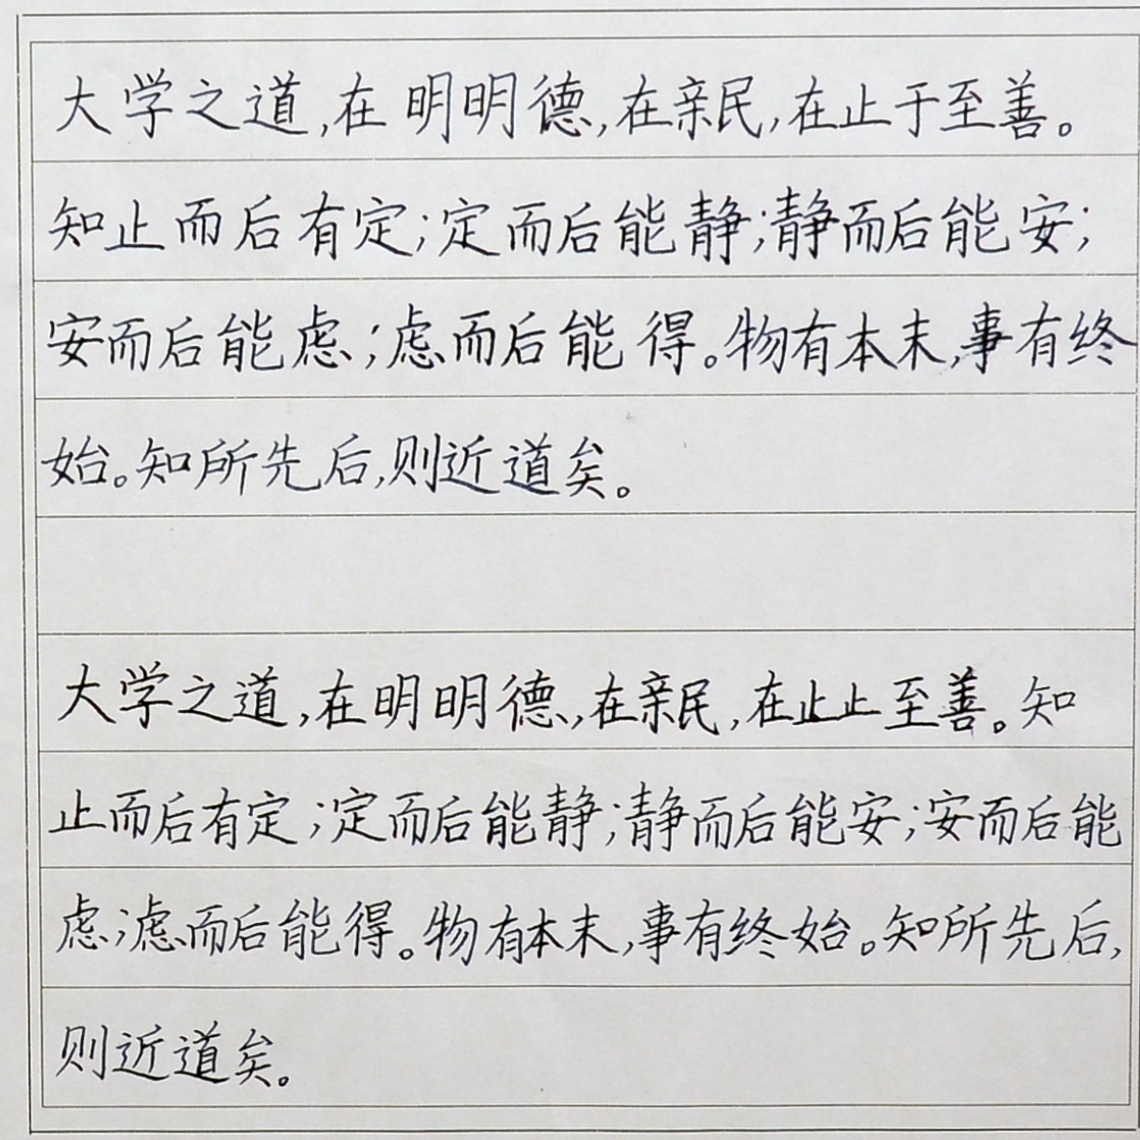 大学之道,在明明德,在亲民,在止于至善。
知止而后有定;定而后能静;静而后能安;
安而后能虑;虑而后能得。物有本末,事有终
始。知所先后,则近道矣。
大学之道,在明明德,在亲民,在止止至善。知
止而后有定;定而后能静;静而后能安;安而后能
虑;虑而后能得。物有本末,事有终始。知所先后,
则近道矣。